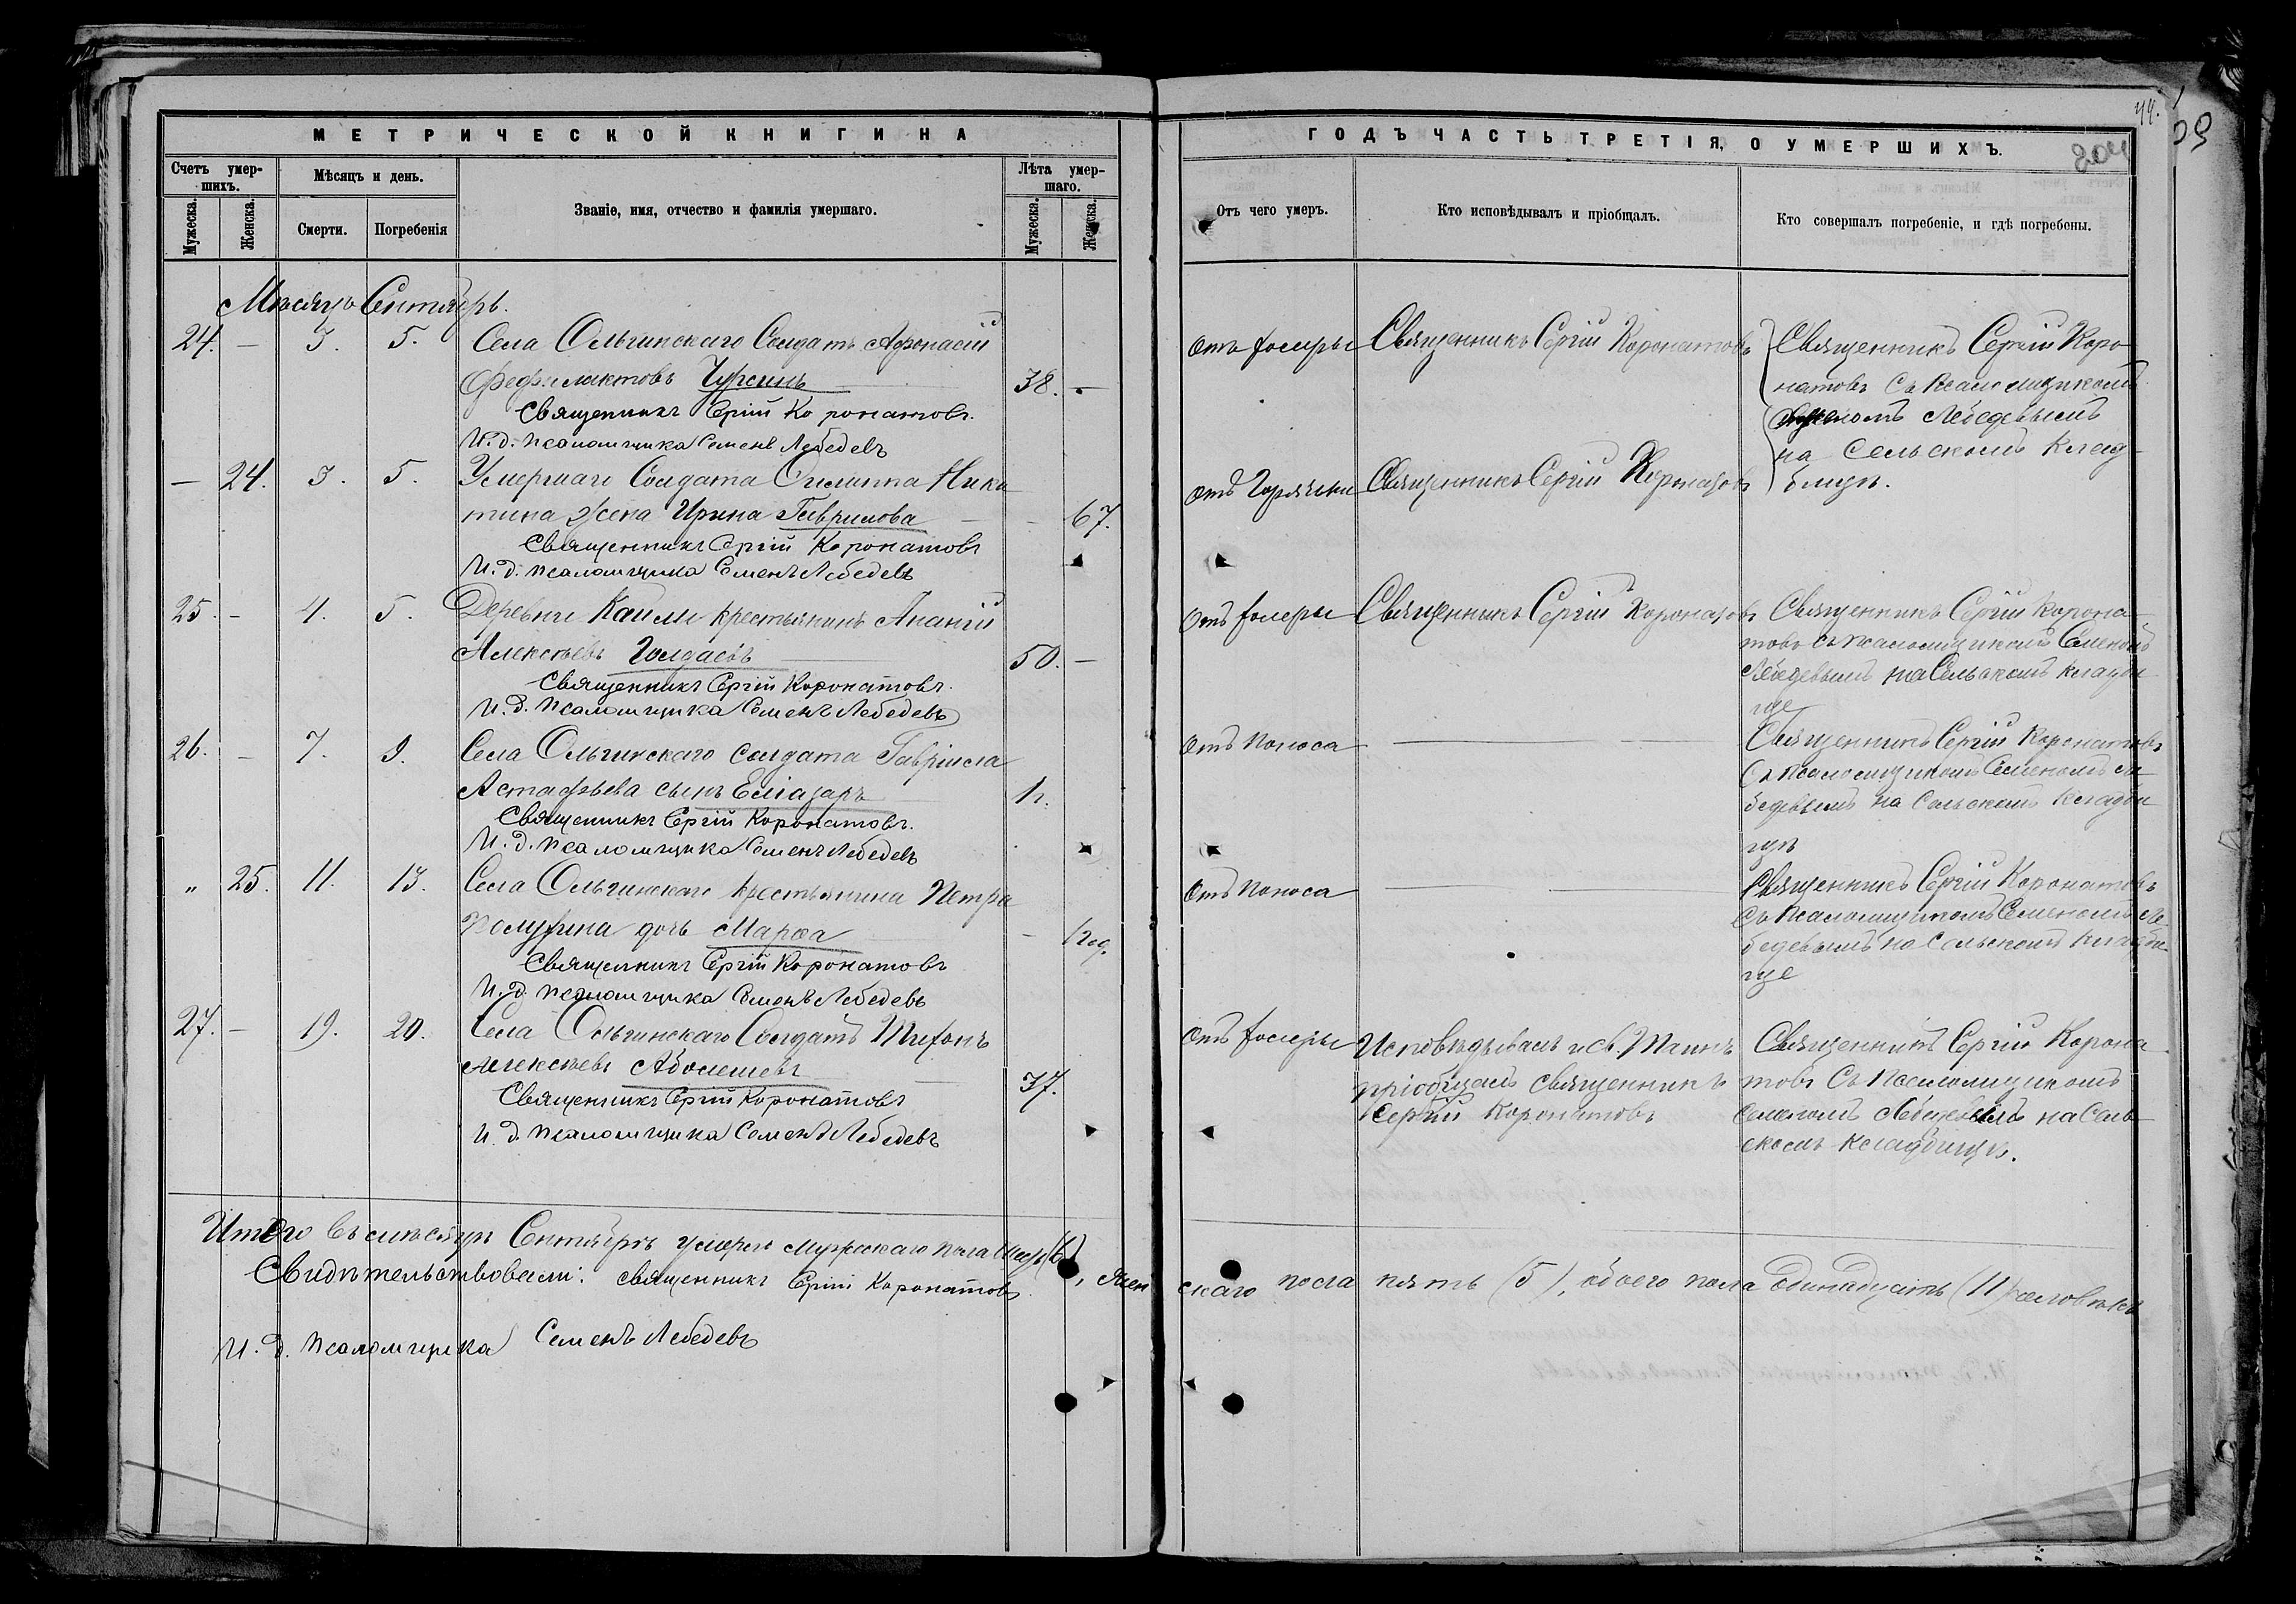 МЕТРИЧЕСКОЙ КНИГИ НА
Счетъ умер-
шихъ.
Мѣсяцъ и день.
Званіе, имя, отчество и фамилія умершаго.
Лѣта умер-
шаго.
Мужеска.
Женска.
Смерти.
Погребенія
Мужеска.
Женска.
Мѣсяцъ Сентябрь.
24. — 3. 5. Села Ольгинскаго Солдатъ Афонасій
Фефилактовъ Чурсинъ 38. —
Священникъ Сергій Коронатовъ.
И. д. псаломщика Семенъ Лебедевъ
— 24. 3. 5. Умершаго Солдата Филиппа Ники
тина жена Ирина Гаврилова — 67.
Священникъ Сергій Коронатовъ
И. д. псаломщика Семенъ Лебедевъ
25. — 4. 5. Деревни Каили крестьянинъ Ананій
Алексѣевъ Голдаевъ 50. —
Священникъ Сергій Коронатовъ.
И. д. псаломщика Семенъ Лебедевъ
26. — 7. 9. Села Ольгинскаго солдата Гавріила
Астафьева сынъ Еліазаръ 1 г.
Священникъ Сергій Коронатовъ.
И. д. псаломщика Семенъ Лебедевъ
„ 25. 11. 13. Села Ольгинскаго крестьянина Петра
дочь Марѳа — 1 год.
Священникъ Сергій Коронатовъ
И. д. псаломщика Семенъ Лебедевъ
27. — 19. 20. Села Ольгинскаго Солдатъ Тихонъ
Алексѣевъ Аболешевъ 37.
Священникъ Сергій Коронатовъ
И. д. псаломщика Семенъ Лебедевъ
Итого въ мѣсяцѣ Сентябрѣ умерло мужескаго пола (6), жен
Свидѣтельствовали: священникъ Сергій Коронатовъ.
И. д. псаломщика Семенъ Лебедевъ
44.
ГОДЪ ЧАСТЬ ТРЕТІЯ, О УМЕРШИХЪ.
Отъ чего умеръ.
Кто исповѣдывалъ и пріобщалъ.
Кто совершалъ погребеніе, и гдѣ погребены.
Отъ холеры Священникъ Сергій Коронатовъ Священникъ Сергій Коро
натовъ съ псаломщикомъ
Лебедевымъ
на сельскомъ клад-
бищѣ.
Отъ Горячки Священникъ Сергій Коронатовъ
Отъ холеры Священникъ Сергій Коронатовъ Священникъ Сергій Корона-
товъ съ псаломщикомъ Семеномъ
Лебедевымъ на Сельскомъ кладби
ще
Отъ поноса Священникъ Сергій Коронатовъ
съ псаломщикомъ Семеномъ Ле
бедевымъ на Сельскомъ кладби
щѣ
Отъ поноса Священникъ Сергій Коронатовъ
съ псаломщикомъ Семеномъ Ле
бедевымъ на Сельскомъ кладби-
ще
Отъ холеры Исповѣдывалъ и Св. Таинъ Священникъ Сергій Корона
пріобщалъ священникъ товъ съ псаломщикомъ
Сергій Коронатовъ Семеномъ Лебедевымъ на Сель
скомъ кладбищѣ.
скаго пола пять (5), обоего пола одинадцать (11) человѣкъ